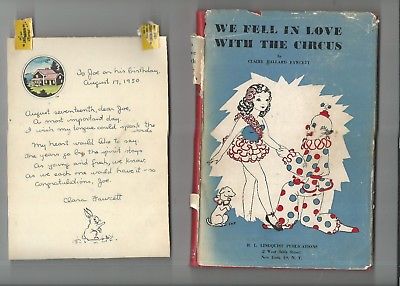 To Joe on his birthday,
August 17, 1950
August seventeenth, dear Joe,
A most important day,
I wish my tongue could speak the
words
My heart would like to say.
The years go by the spirit stays
As young and fresh, we know
As we each one would have it - so
Congratulations, Joe.
Clara Fawcett
WE FELL IN LOVE
WITH THE CIRCUS
by
CLAIRE HALLARD FAWCETT
H. L. LINDQUIST PUBLICATIONS
2 West 46th Street
New York, 19, N. Y.